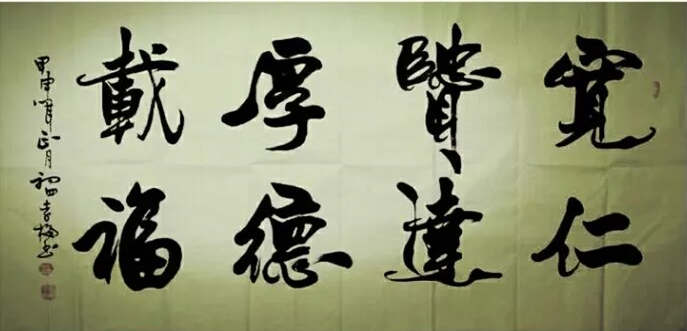 寬仁
贒達
厚德
載福
甲申年正月初四
書